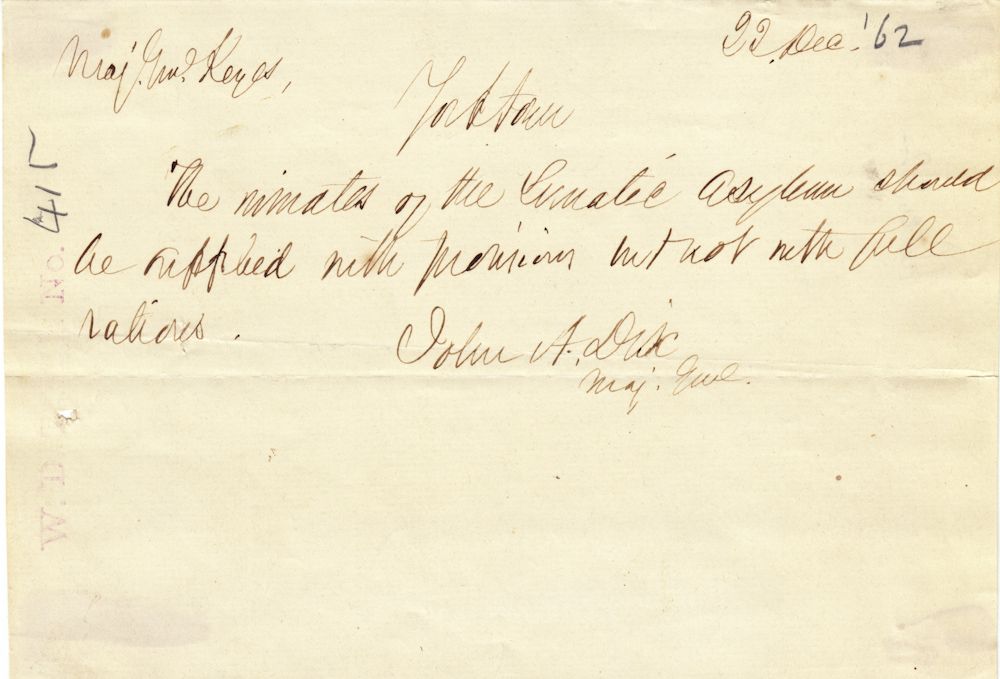 22 Dec. '62
Maj. Genl Keyes,
Yorktown
The inmates of the Lunatic Asylum should
be supplied with provisions but not with full
rations.
John A. Dix
Maj. Genl.
W. D.
No. 415